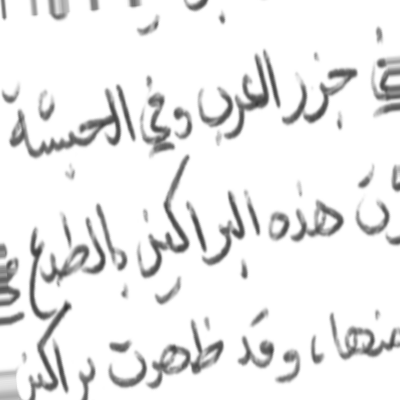 في جزر العرب وفي الحبشة
هذه البراكين بالطلوع في
منها، وقد ظهرت براكين